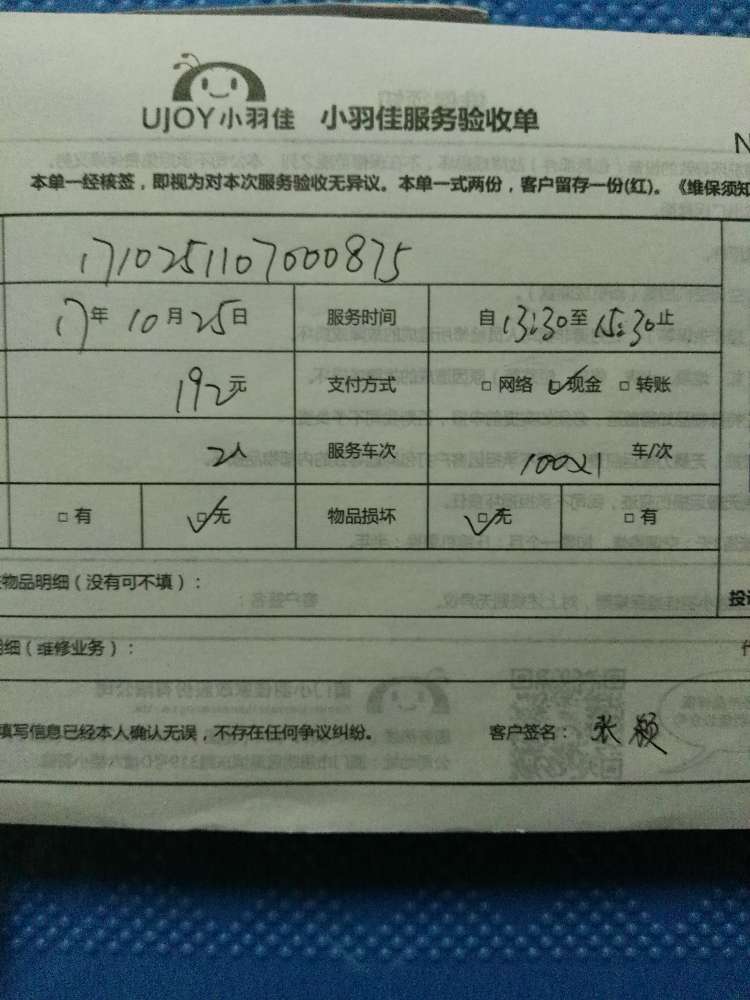 UJOY小羽佳 小羽佳服务验收单
N
本单一经核签，即视为对本次服务验收无异议。本单一式两份，客户留存一份(红)。《维保须知
1710251107000875
17年 10月 25日 服务时间 自 13:30 至 15:30 止
192元 支付方式 □ 网络 ☑ 现金 □ 转账
2人 服务车次 100×1 车/次
□ 有 ☑ 无 物品损坏 ☑ 无 □ 有
物品明细（没有可不填）：
投诉
明细（维修业务）：
填写信息已经本人确认无误，不存在任何争议纠纷。 客户签名：张颖